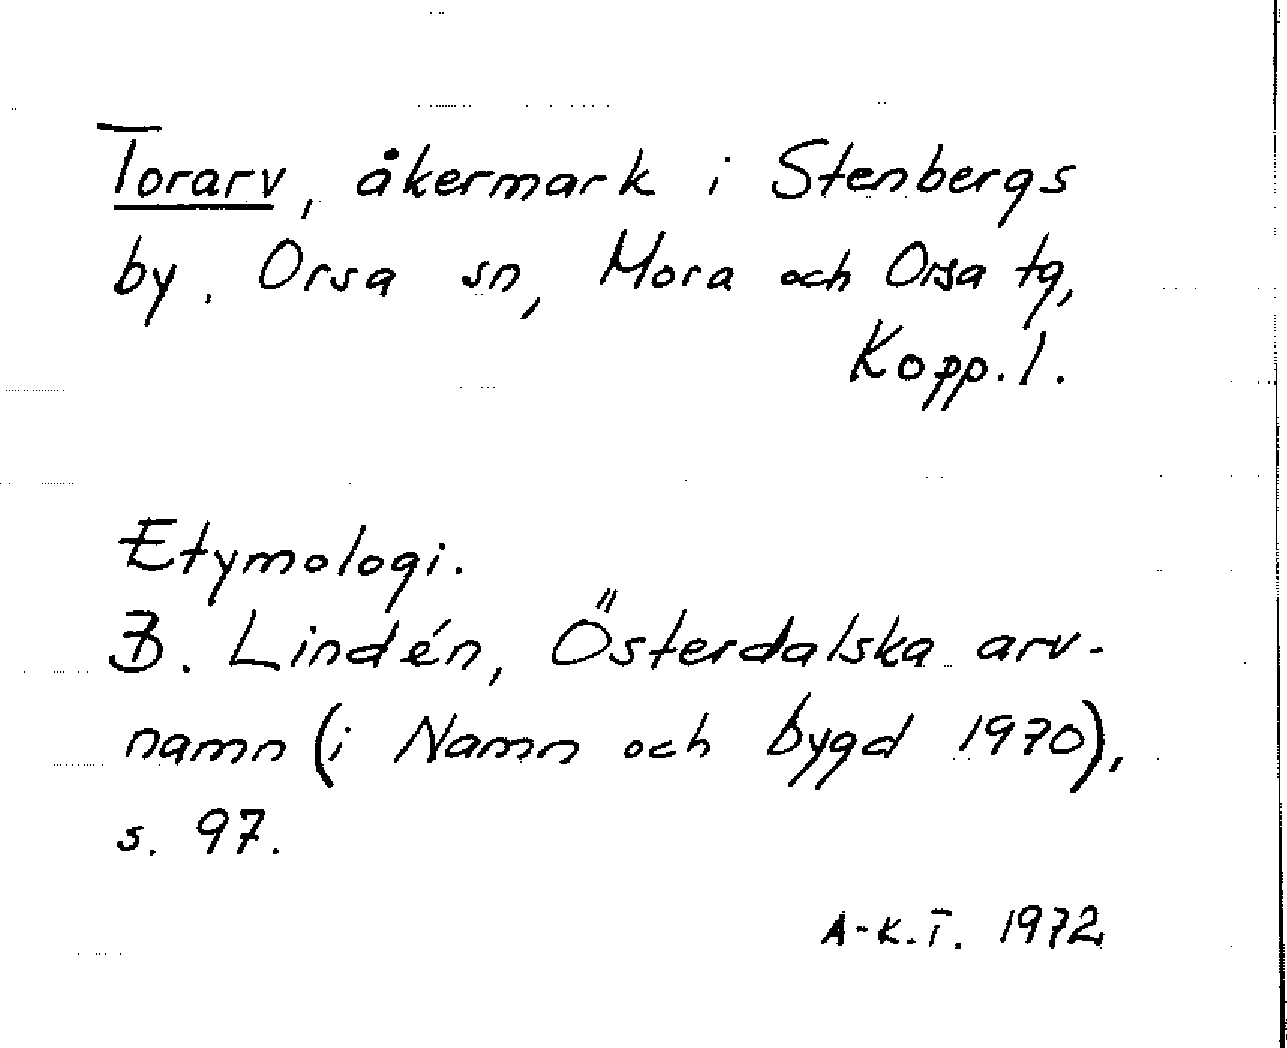 Torarv, åkermark i Stenbergs
by. Orsa sn, Mora och Orsa tg,
Kopp. l.
Etymologi.
B. Lindén, Österdalska arv-
namn (i Namn och bygd 1970),
s. 97.
A-K.T. 1972